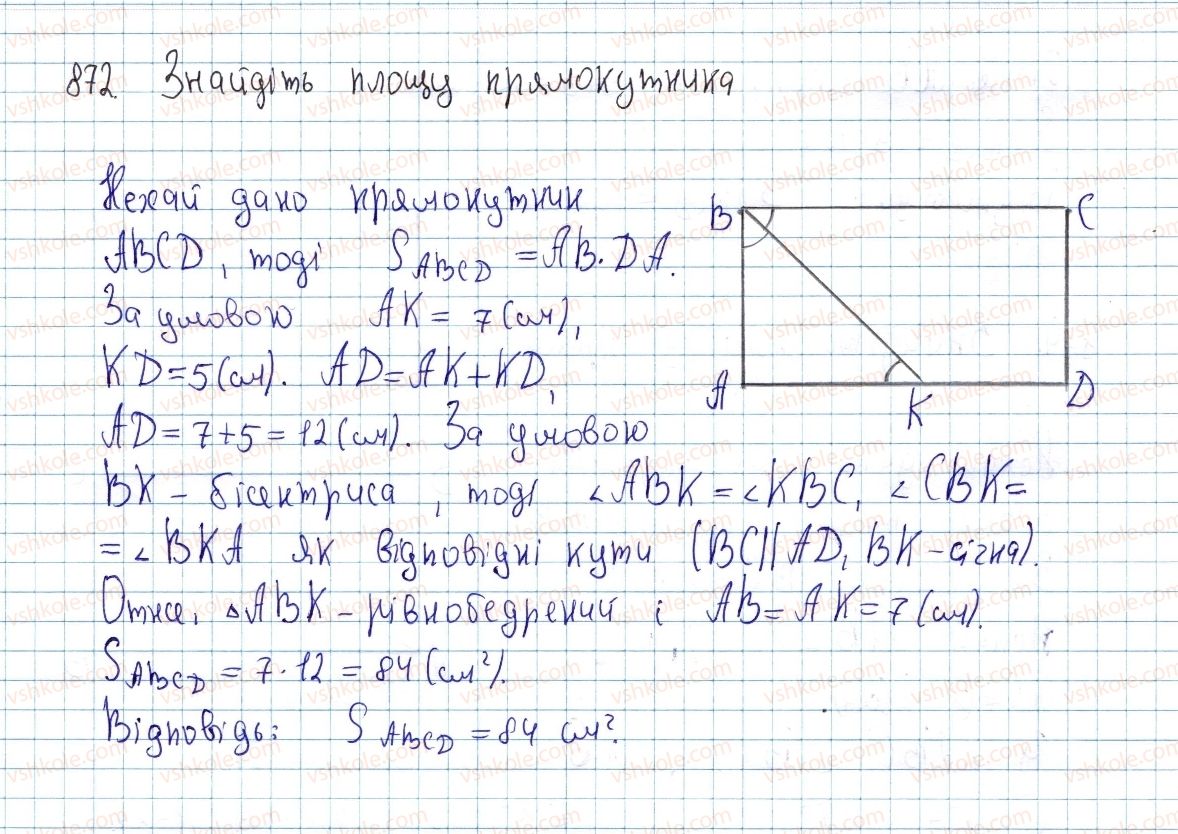 872 Знайдіть площу прямокутника
Нехай дано прямокутник
ABCD, тоді S ABCD = AB · DA.
За умовою AK = 7 (см),
KD = 5 (см). AD = AK + KD,
AD = 7 + 5 = 12 (см). За умовою
BK – бісектриса, тоді ∠ABK = ∠KBC, ∠CBK =
= ∠BKA як відповідні кути (BC || AD, BK – січна).
Отже, △ABK – рівнобедрений і AB = AK = 7 (см).
S ABCD = 7 · 12 = 84 (см²).
Відповідь: S ABCD = 84 см².
B C
A K D
vshkole.com